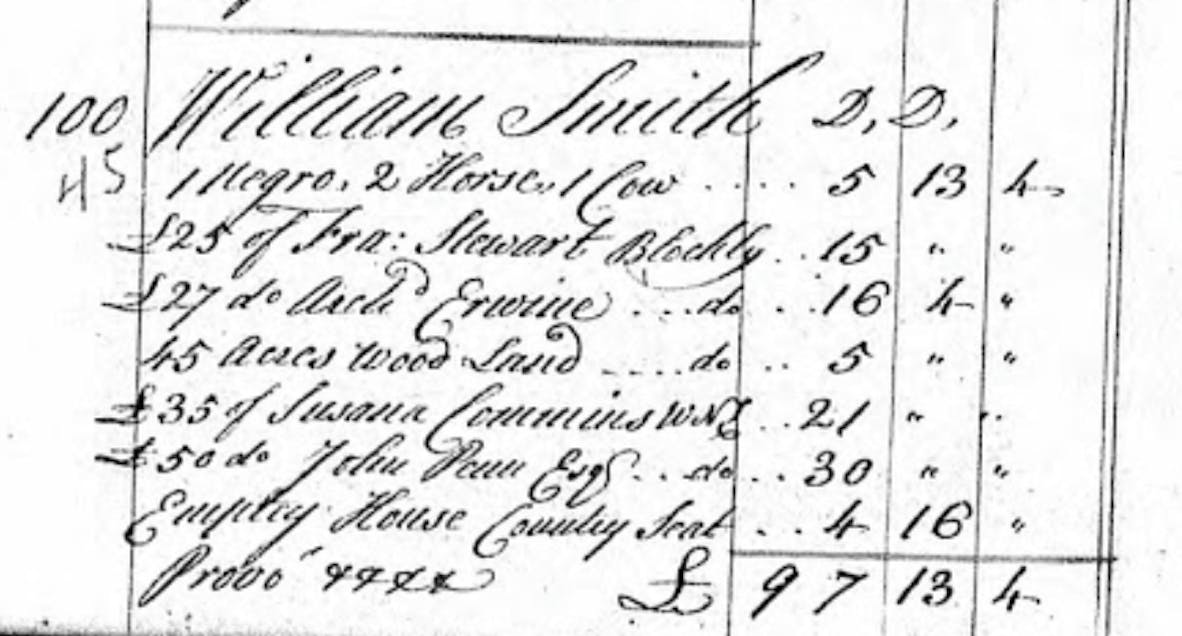 100 William Smith D, D,
45 1 Negro, 2 Horse, 1 Cow .... 5 13 4
£25 of Fra: Stewart Blockly .. 15 " "
£27 do Archd Erwine ... do .. 16 4 "
45 Acres Wood Land .... do .. 5 " "
£35 of Susana Commins .. 21 " "
£50 do John Penn Esqr .. do .. 30 " "
Emptey House Country Seat .. 4 16 "
Provo £ 97 13 4